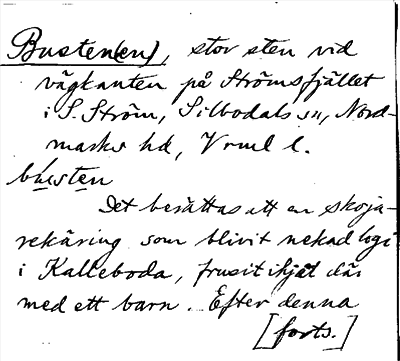 Busten(en), stor sten vid
vägkanten på Strömsfjället
i S. Ström, Silbodals sn, Nord-
marks hd, Vrml l.
busten
Det berättas att en skoja-
rekäring som blivit nekad logi
i Kalleboda, frusit ihjäl där
med ett barn. Efter denna
[forts.]